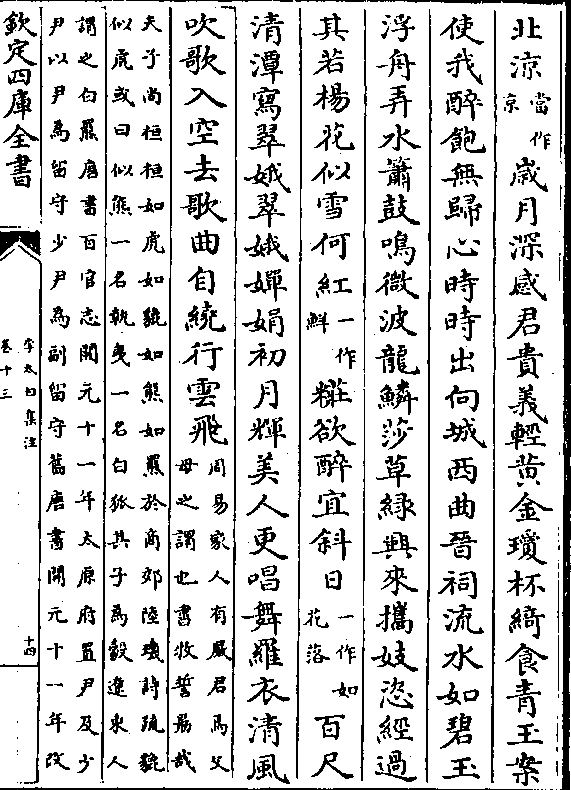 北涼當作京歲月深感君貴義輕黃金瓊杯綺食青玉案
使我醉飽無歸心時時出向城西曲晉祠流水如碧玉
浮舟弄水簫鼓鳴微波龍鱗莎草綠興來攜妓恣經過
其若楊花似雪何紅一作鮮糚欲醉宜斜日一作如花落百尺
清潭寫翠娥翠娥嬋娟初月輝美人更唱舞羅衣清風
吹歌入空去歌曲自繞行雲飛周易家人有嚴君焉父
母之謂也書牧誓勗哉
夫子尚桓桓如虎如貔如熊如羆於商郊陸璣詩疏貔
似虎或曰似熊一名執夷一名白狐其子為豰遼東人
謂之白羆唐書百官志開元十一年太原府置尹及少
尹以尹為留守少尹為副留守舊唐書開元十一年改
欽定四庫全書
李太白集注
卷十三
十四